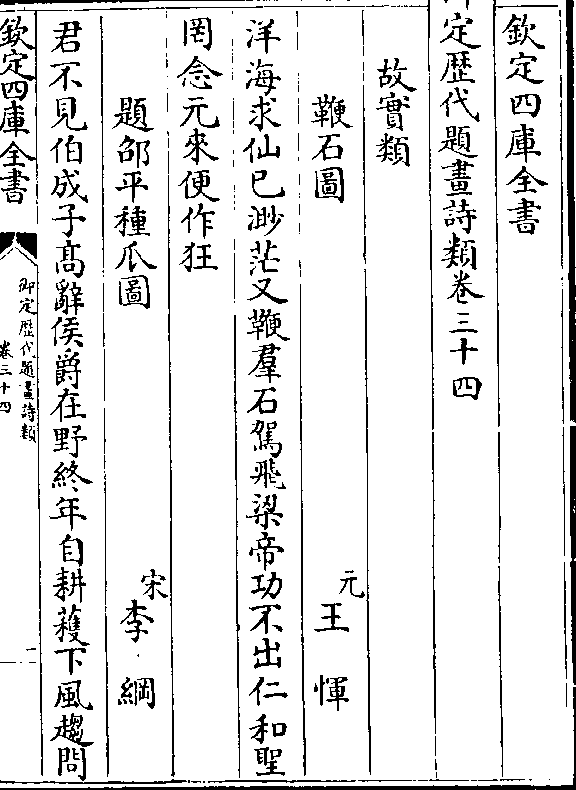 欽定四庫全書
御定歴代題畫詩類卷三十四
故實類
鞭石圖
元王惲
洋海求仙已渺茫又鞭羣石駕飛梁帝功不出仁和聖
罔念元來便作狂
題邵平種瓜圖
宋李綱
君不見伯成子髙辭侯爵在野終年自耕蓷下風趨問
欽定四庫全書
御定歴代題畫詩類
卷三十四
一